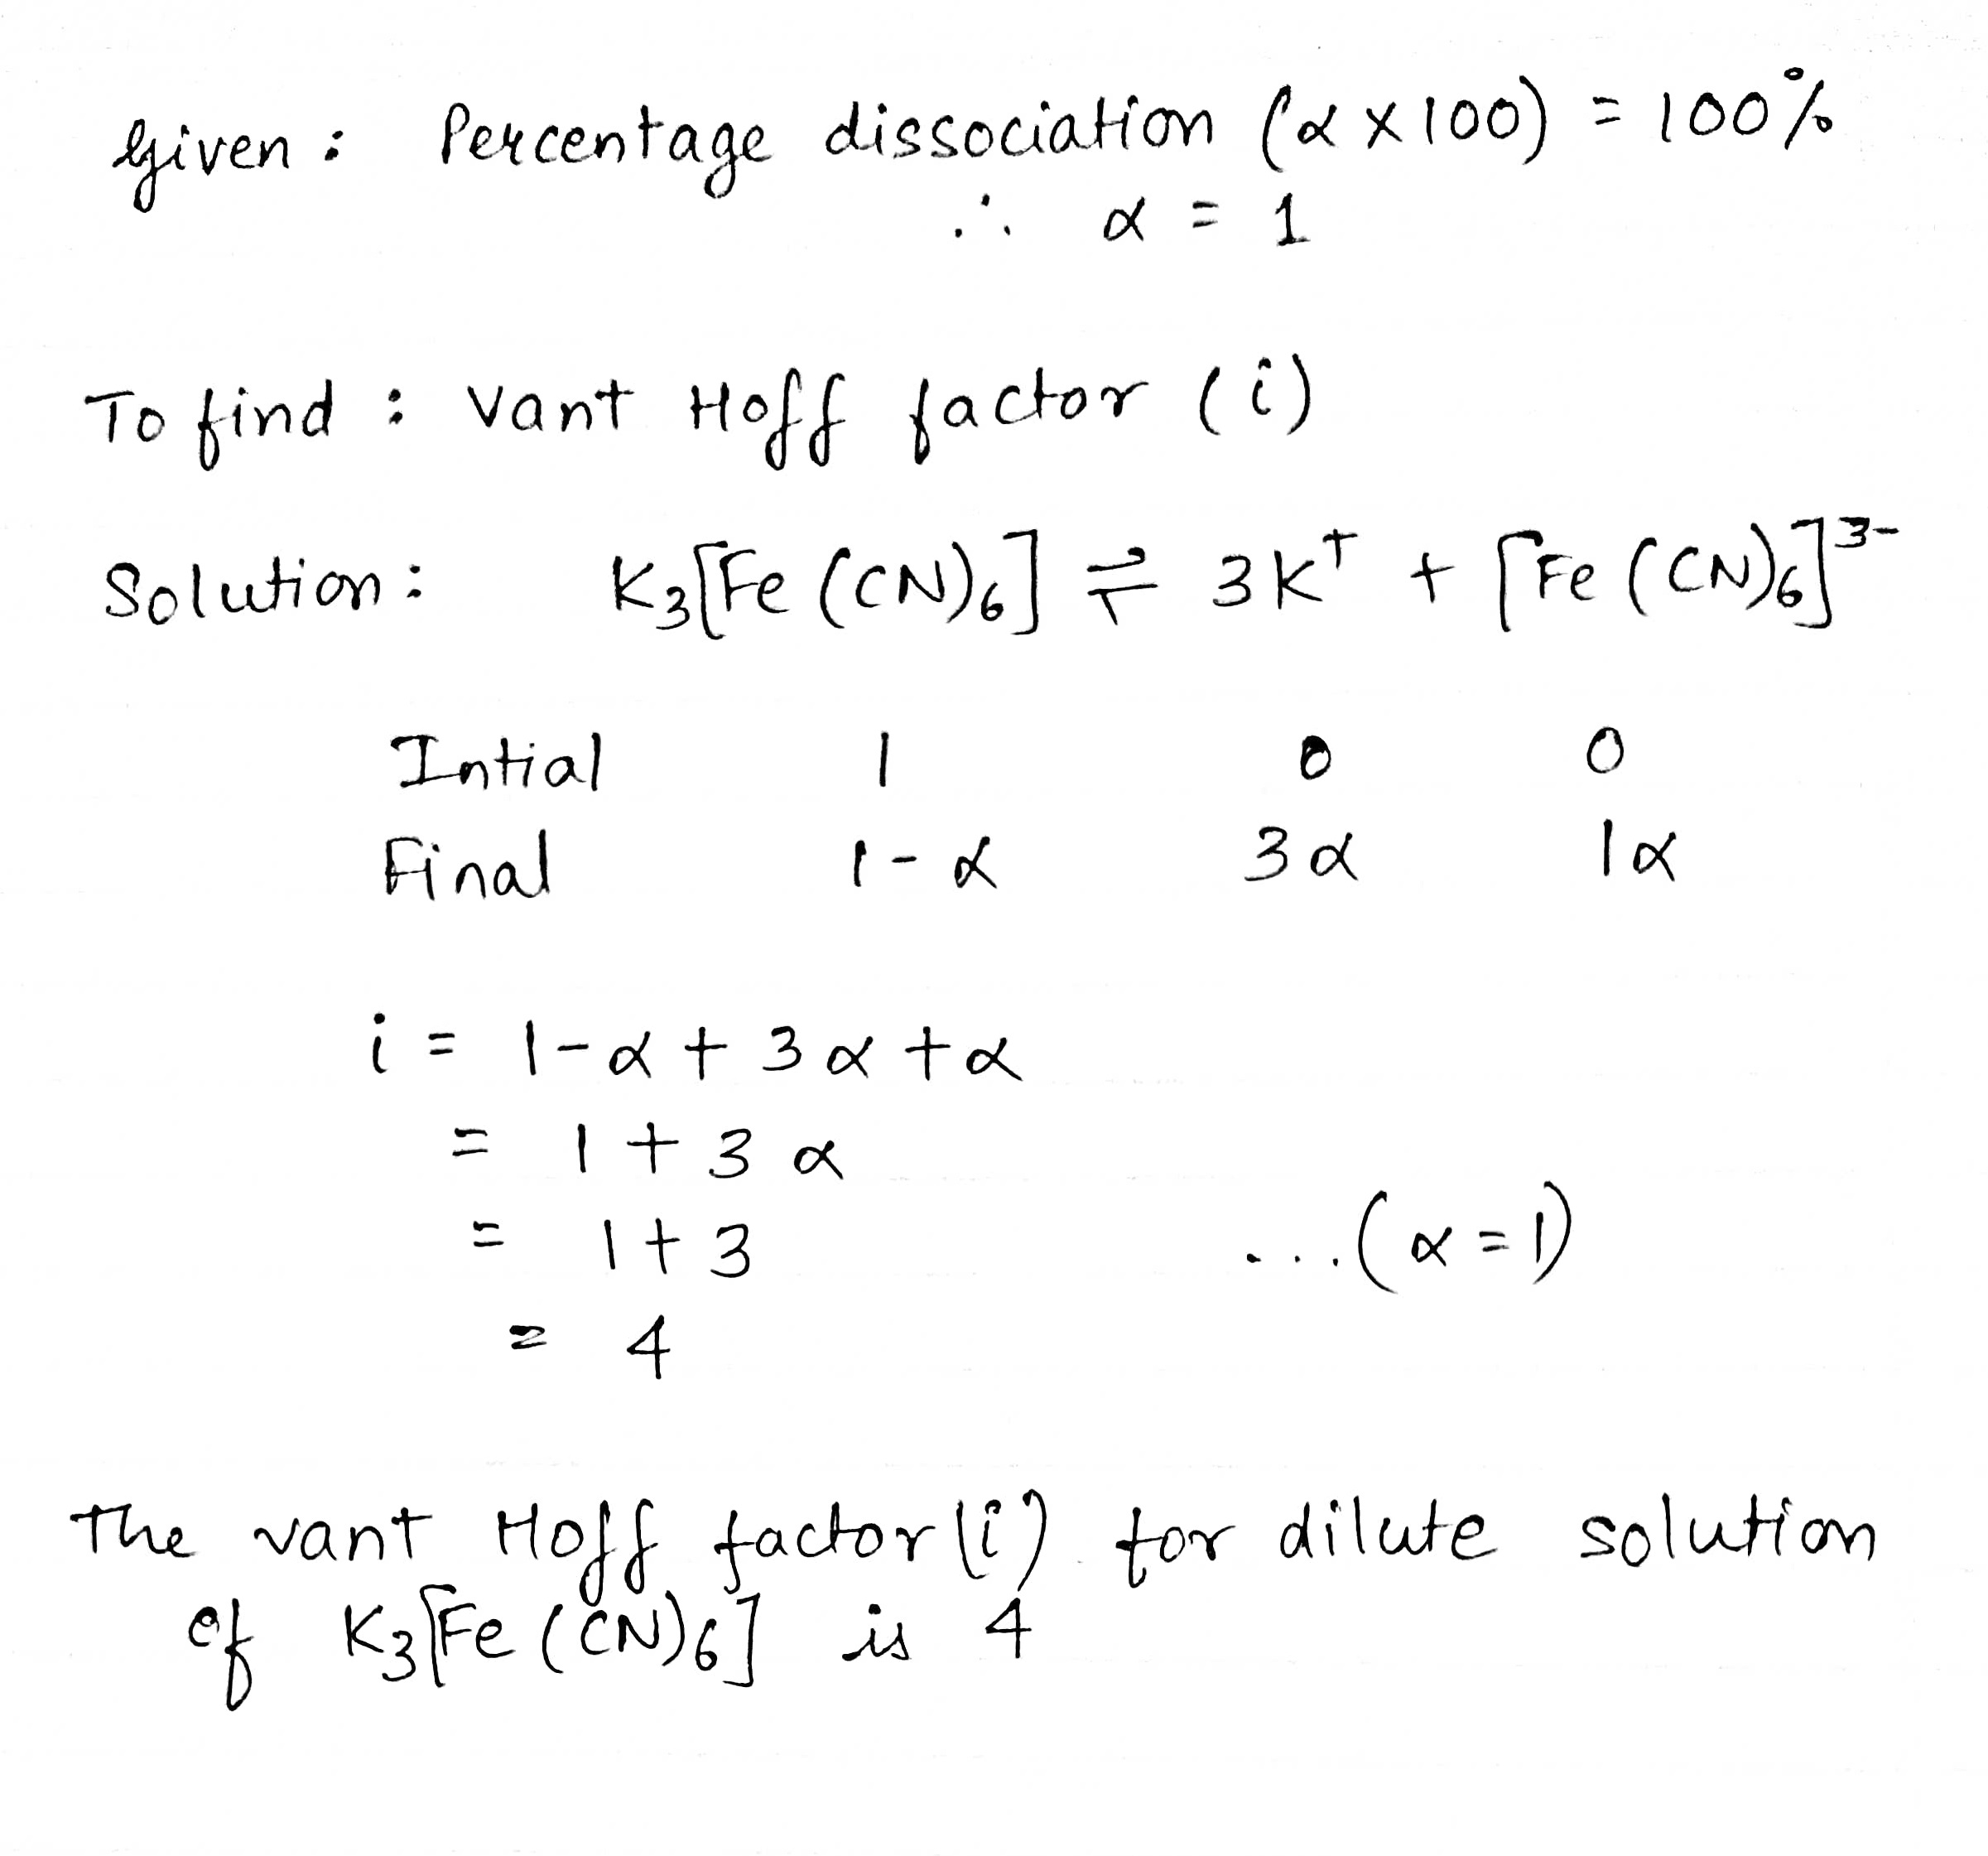 Given : Percentage dissociation (α × 100) = 100%
∴ α = 1
To find : Vant Hoff factor (i)
Solution : K₃[Fe(CN)₆] ⇌ 3K⁺ + [Fe(CN)₆]³⁻
Intial 1 0 0
Final 1-α 3α 1α
i = 1-α + 3α + α
= 1 + 3α
= 1 + 3 ...(α = 1)
= 4
The vant Hoff factor (i) for dilute solution
of K₃[Fe(CN)₆] is 4